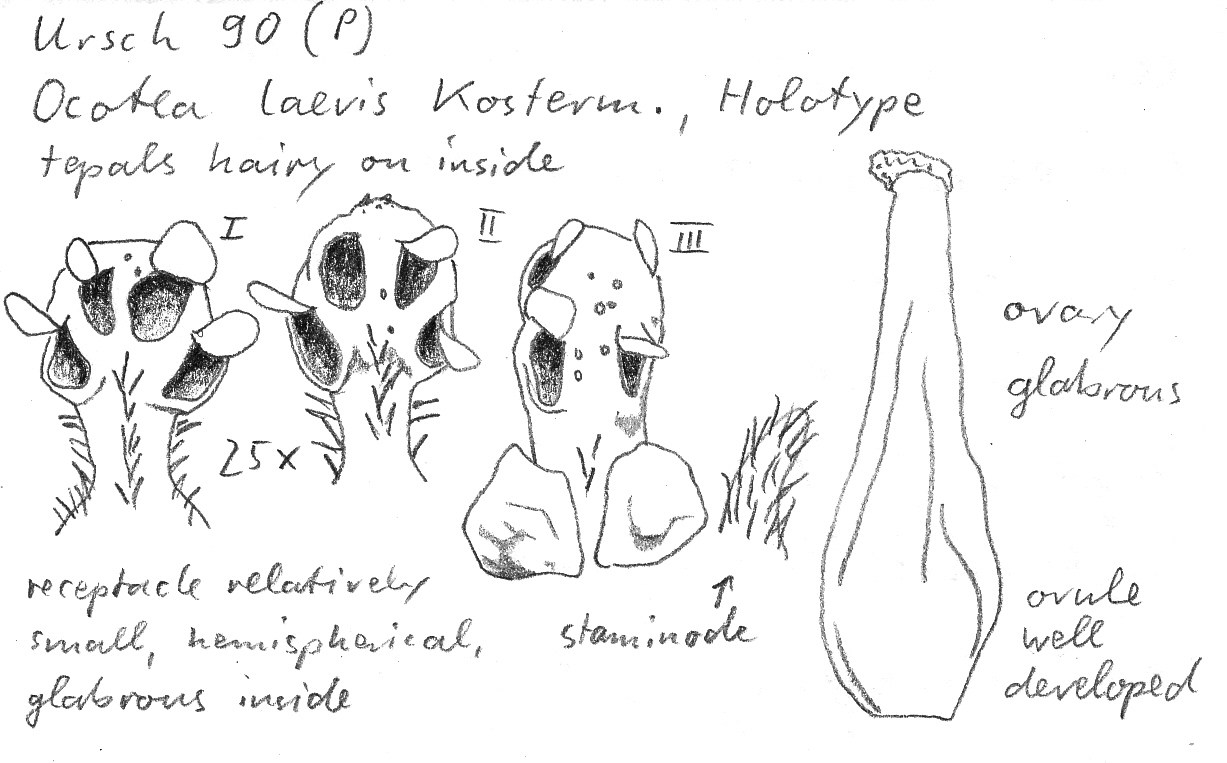 Ursch 90 (P)
Ocotea laevis Kosterm., Holotype
tepals hairy on inside
I
II
III
25x
ovary
glabrous
receptacle relatively
small, hemispherical,
glabrous inside
↑
staminode
ovule
well
developed